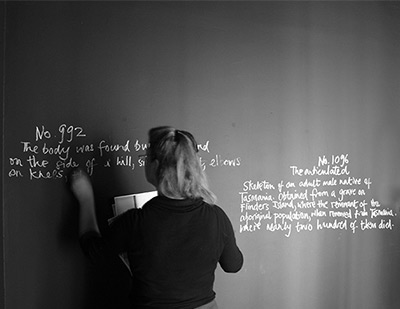 No. 992
The body was found bu nd
on the side of a hill, s elbows
on knees.
No. 1096
The articulated
Skeleton of an adult male native of
Tasmania. Obtained from a grave on
Flinders Island, where the remnant of the
aboriginal population, when removed from Tasmania,
where nearly two hundred of them died.